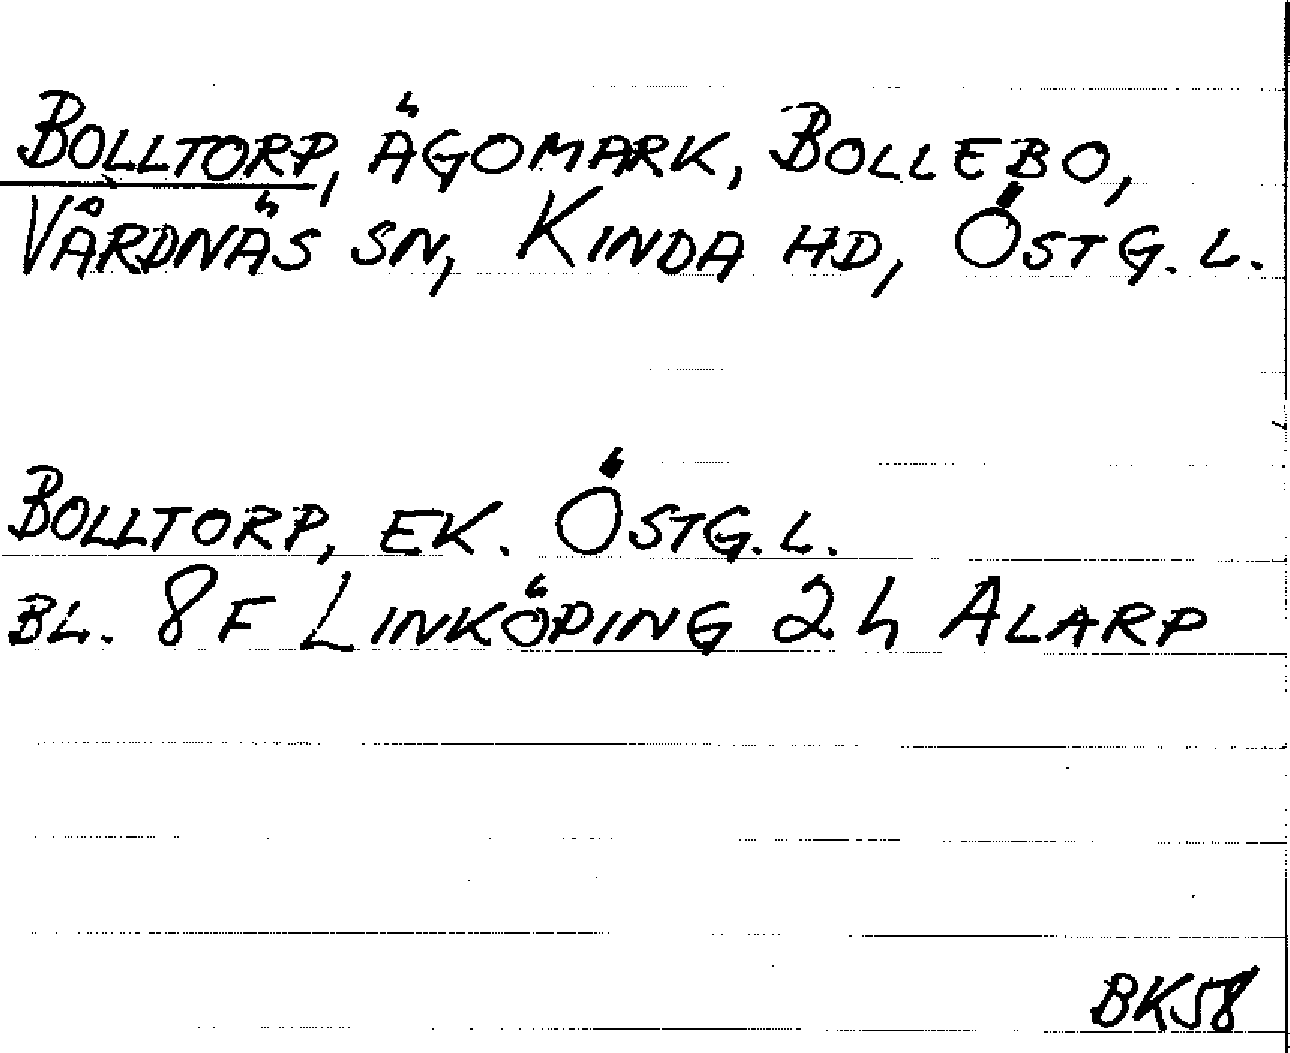 BOLLTORP, ÄGOMARK, BOLLEBO,
VÅRDNÄS SN, KINDA HD, ÖSTG. L.
BOLLTORP, EK. ÖSTG. L.
BL. 8F LINKÖPING 2h ALARP
BK58